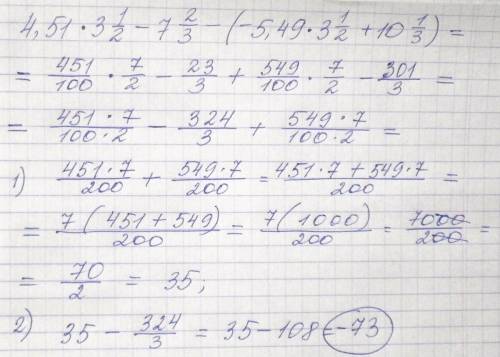 4,51 · 3 1/2 − 7 2/3 − (−5,49 · 3 1/2 + 10 1/3) =
= 451/100 · 7/2 − 23/3 + 549/100 · 7/2 − 301/3 =
= 451 · 7/100 · 2 − 324/3 + 549 · 7/100 · 2 =
1) 451 · 7/200 + 549 · 7/200 = 451 · 7 + 549 · 7/200 =
= 7(451 + 549)/200 = 7(1000)/200 = 7000/200 =
= 70/2 = 35;
2) 35 − 324/3 = 35 − 108 = −73